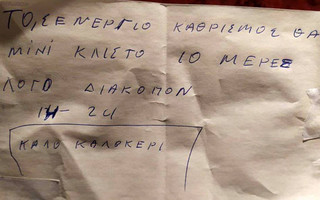 ΤΟ, ΣΕΝΕΡΓΙΟ ΚΑΘΡΙΣΜΟΣ ΘΑ
ΜΙΝΙ ΚΛΙΣΤΟ 10 ΜΕΡΕΣ
ΛΟΓΟ ΔΙΑΚΟΠΟΝ
14 - 24
ΚΑΛΟ ΚΑΛΟΚΕΡΙ